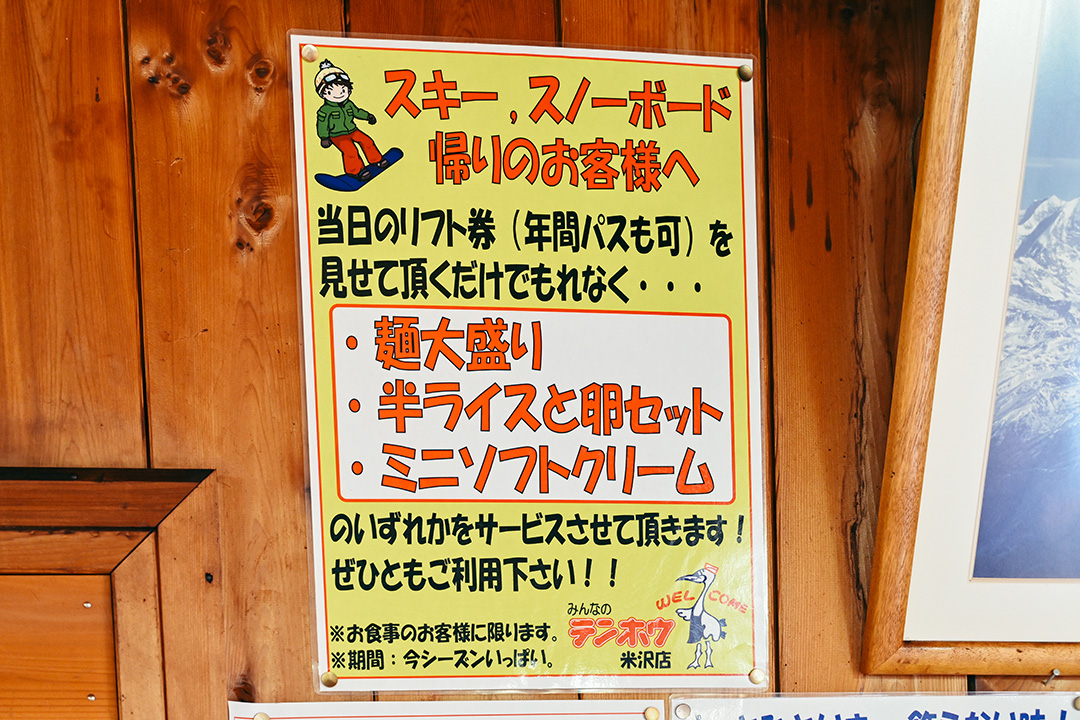 スキー,スノーボード
帰りのお客様へ
当日のリフト券(年間パスも可)を
見せて頂くだけでもれなく・・・
・麺大盛り
・半ライスと卵セット
・ミニソフトクリーム
のいずれかをサービスさせて頂きます!
ぜひともご利用下さい!!
※お食事のお客様に限ります。
※期間:今シーズンいっぱい。
みんなの
テンホウ
米沢店
WELCOME